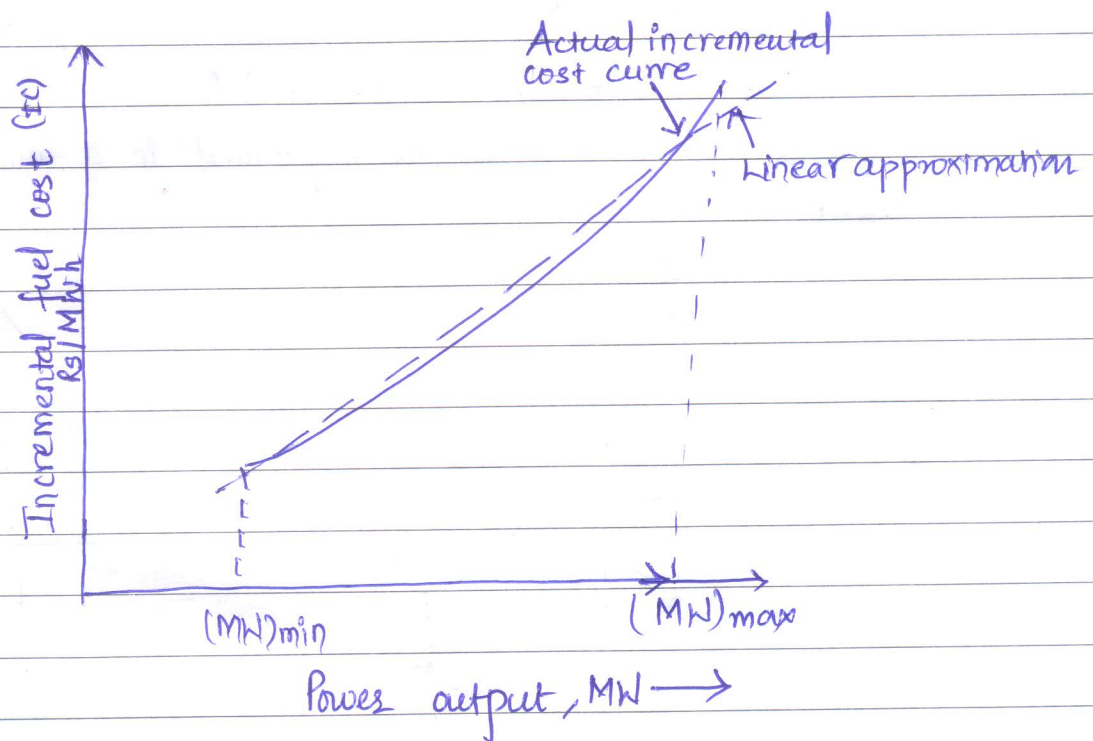 Actual incremental
cost curve
Linear approximation
Incremental fuel cost (IC)
Rs/MWh
(MW)min
(MW)max
Power output, MW